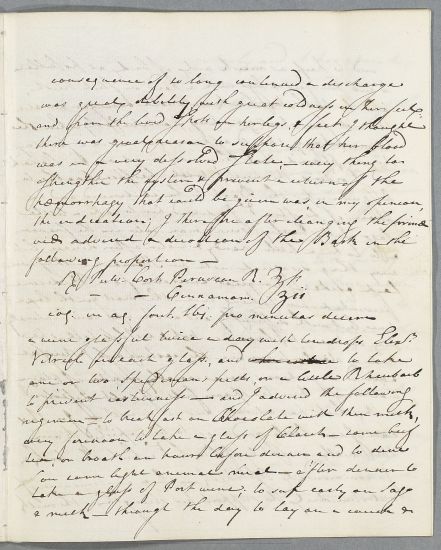 consequence of so long continued a discharge
was great debility with great coldness in her feet
and from the livid spots on her legs & feet I thought
there was great reason to suppose that her blood
was in a very dissolved state; every thing to
strengthen the system & prevent a return of the
hæmorrhagy that could be given was in my opinion
the indication; I therefore after changing the prime
viæ advised a decoction of the Bark in the
following proportion —
℞ Pulv. Cort Peruvian R. ℥ſs
— — Cinnamom. ʒii
coq. in aq. font. ℔j. pro minutas decem
a wine glassful twice a day with ten drops Elix.
Vitriol in each glass, and to take
one or two Speediman's pills, or a little Rhubarb
to prevent costiveness — and I advised the following
regimen — to breakfast on Chocolate with thin milk,
every forenoon to take a glass of Claret — some beef
tea or broath an hour before dinner and to dine
on some light animal meat — after dinner to
take a glass of Port wine; to sup early on Sago
& milk — through the day to lay on a couch &